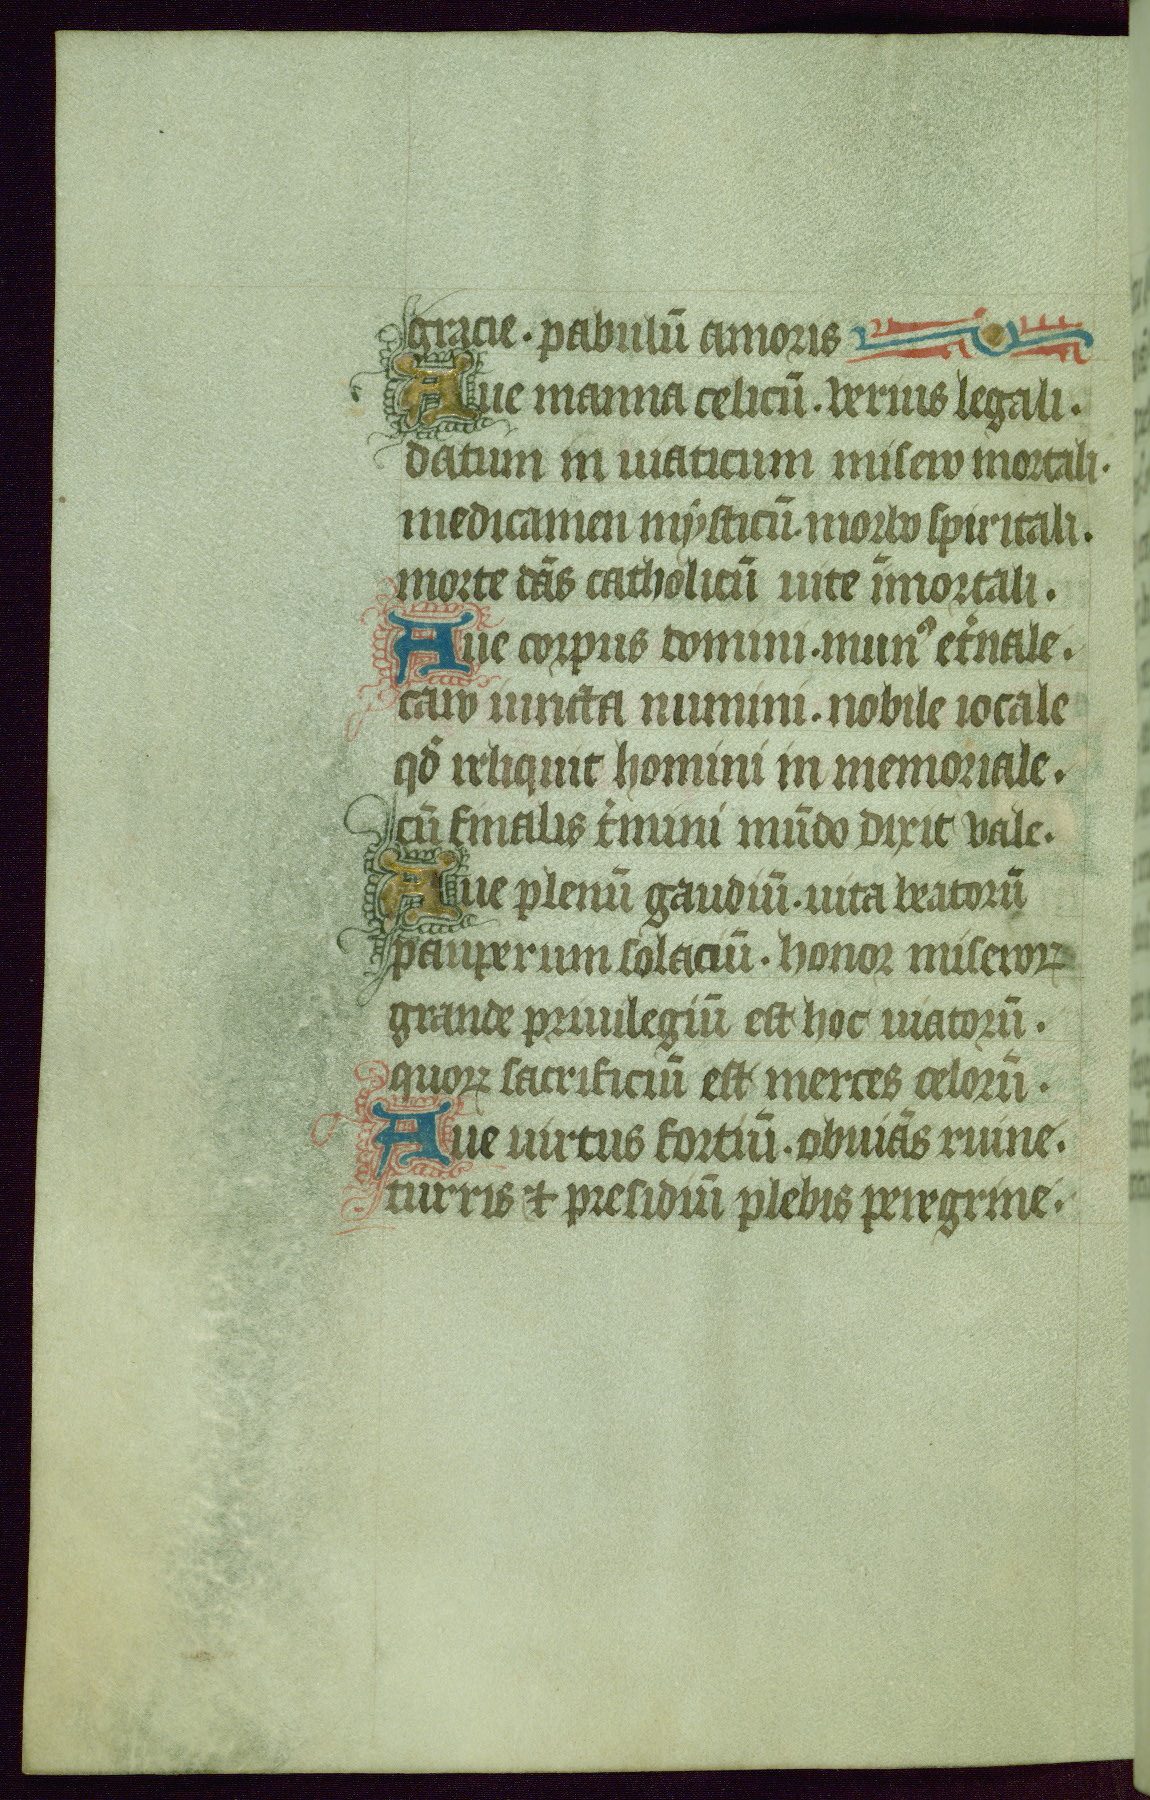 gracie. pabulū amoris
Aue manna celicū. verius legali.
datum in uiaticum misero mortali.
medicamen mysticū. morbo spiritali.
morte dās catholicū uite īmortali.
Aue corpus domini. munꝰ et̄nale.
caro iuncta numini. nobile iocale
qđ reliquit homini in memoriale.
cū finalis t̄mini mūdo dixit vale.
Aue plenū gaudiū. uita beatorū
pauperum solaciū. honor miseroꝝ
grande priuilegiū est hoc uiatorū.
quoꝝ sacrificiū est merces celorū.
Aue uirtus fortiū. obuiās ruine.
turris & presidiū plebis peregrine.